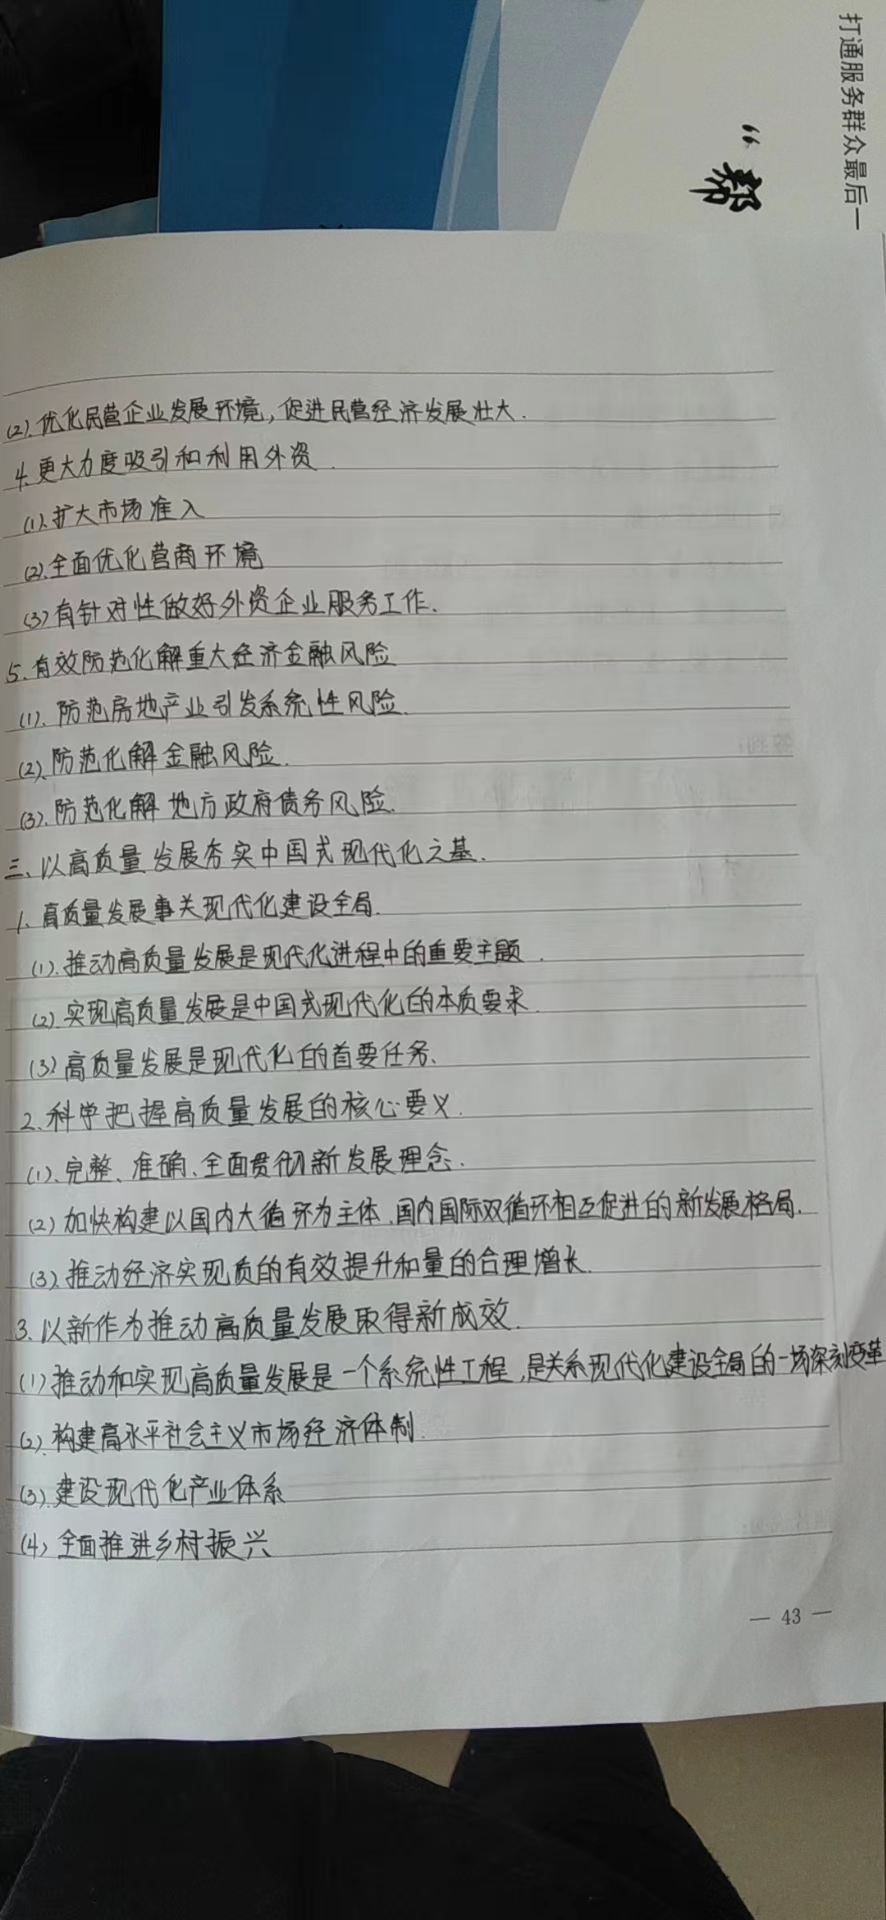 打通服务群众最后一
“帮
(2).优化民营企业发展环境,促进民营经济发展壮大.
4.更大力度吸引和利用外资.
(1).扩大市场准入
(2).全面优化营商环境
(3)有针对性做好外资企业服务工作.
5.有效防范化解重大经济金融风险
(1).防范房地产业引发系统性风险.
(2).防范化解金融风险.
(3).防范化解地方政府债务风险.
三、以高质量发展夯实中国式现代化之基.
1.高质量发展事关现代化建设全局.
(1).推动高质量发展是现代化进程中的重要主题.
(2)实现高质量发展是中国式现代化的本质要求.
(3)高质量发展是现代化的首要任务、
2.科学把握高质量发展的核心要义.
(1).完整、准确、全面贯彻新发展理念.
(2)加快构建以国内大循环为主体、国内国际双循环相互促进的新发展格局.
(3).推动经济实现质的有效提升和量的合理增长.
3.以新作为推动高质量发展取得新成效.
(1)推动和实现高质量发展是一个系统性工程,是关系现代化建设全局的一场深刻变革
(2).构建高水平社会主义市场经济体制.
(3).建设现代化产业体系
(4)全面推进乡村振兴
— 43 —